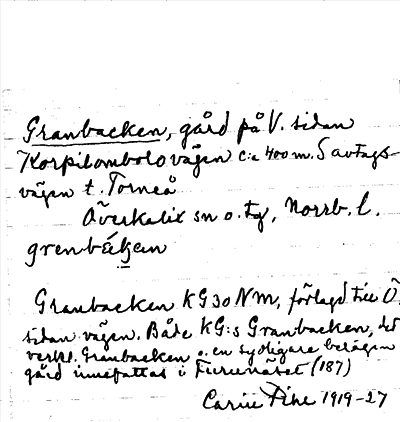 Granbacken, gård på V. sidan
Korpilombolovägen c:a 400 m. S avtags-
vägen t. Torneå
Överkalix sn o. tg, Norrb. l.
Granbacken KG 30 NM, förlagd till Ö.
sidan vägen. Både KG:s Granbacken, det
verkl. Granbacken o. en sydligare belägen
gård innefattas i Furunäset (187)
Carin Pihl 1919-27